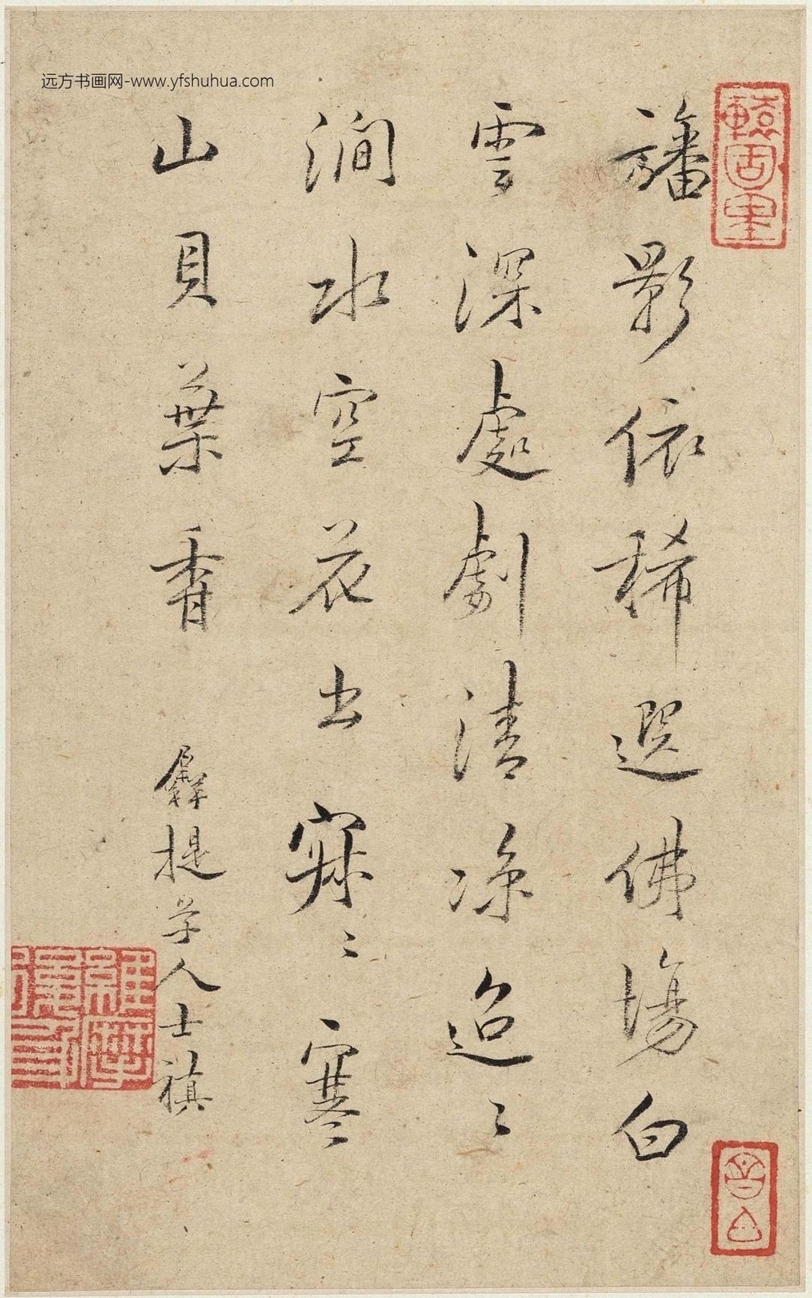 远方书画网-www.yfshuhua.com
旛影依稀選佛場白
雲深處劇清涼迢〻
澗水空花出寂〻寒
山貝葉香
羼提學人士禛